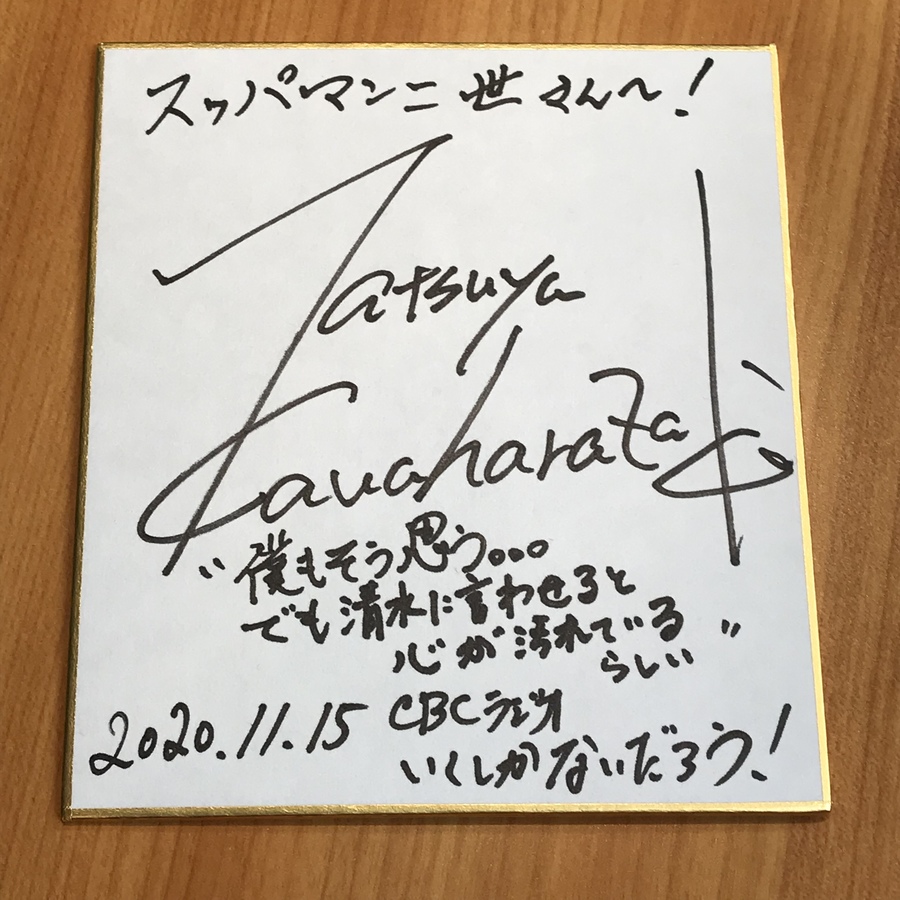 スッパマン二世さんへ!
Tatsuya
Kawaharazaki
"僕もそう思う...
でも清水に言わせると
心が汚れている
らしい"
2020.11.15 CBCラジオ
いくしかないだろう!